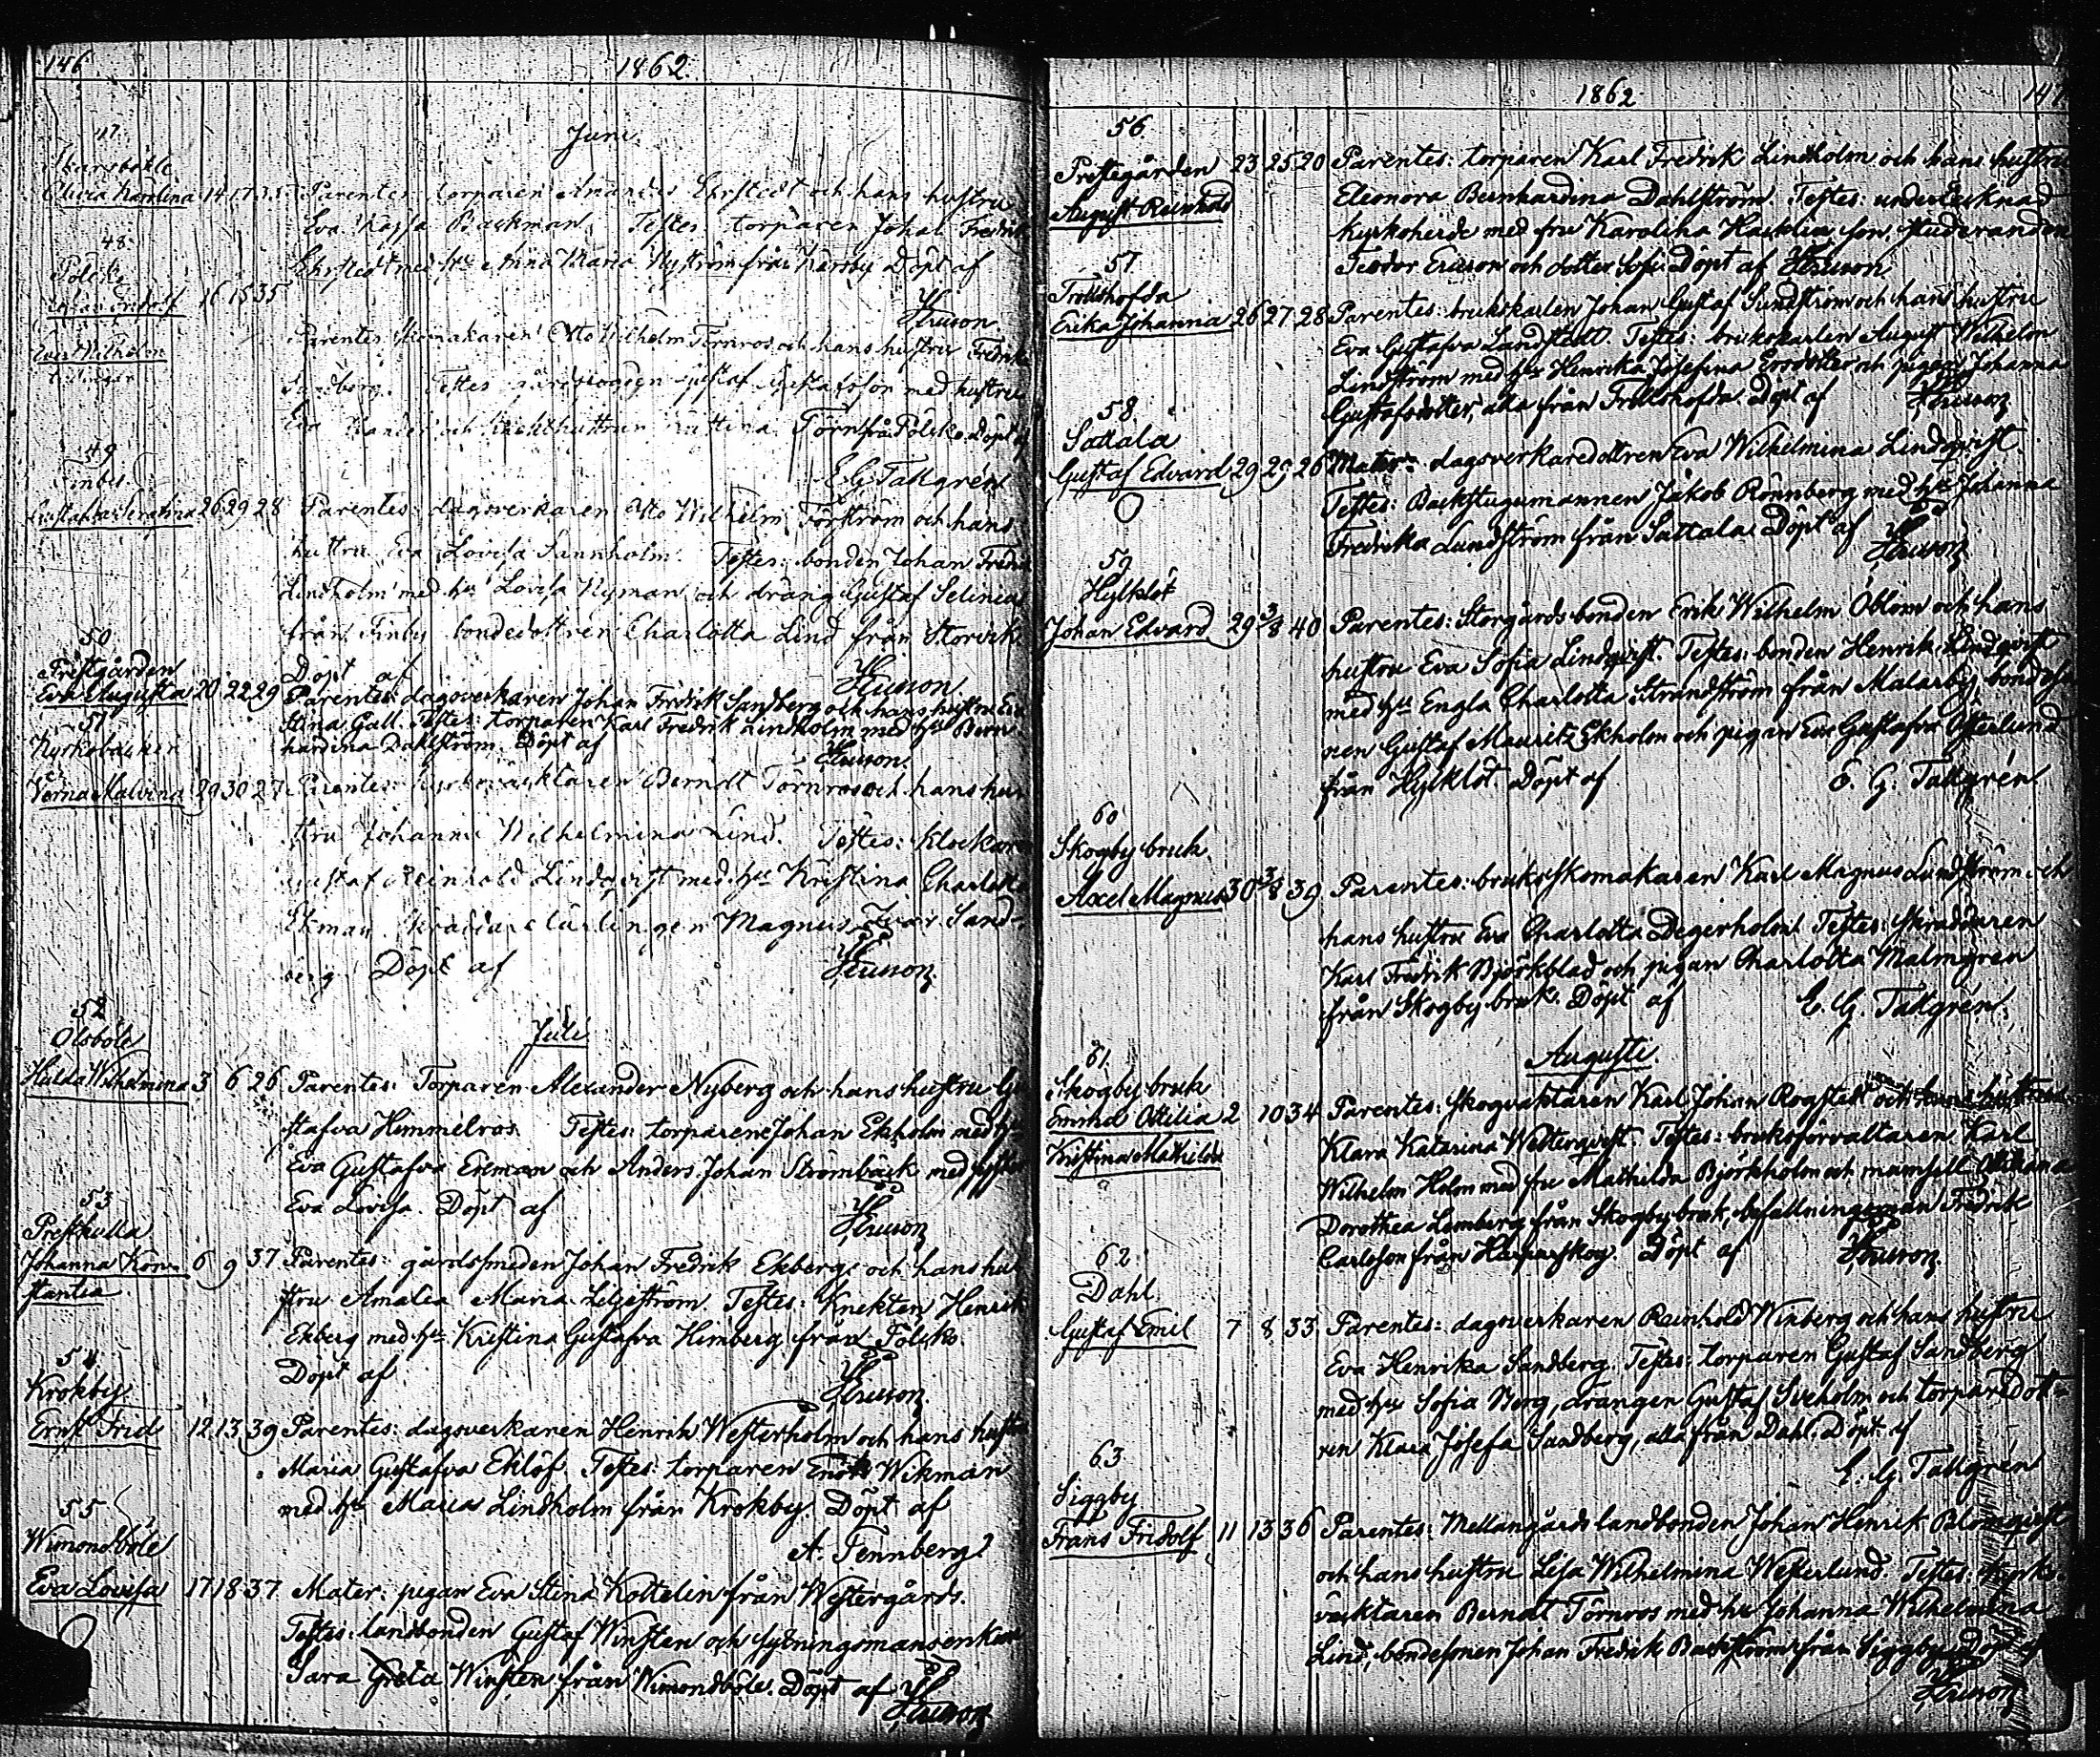 146
1862.
47
Juni.
Skarsböle
Olivia Karolina 14 17 35 Parentes: torparen Amandus Ehrstedt och hans hustru
Eva Kajsa Backman. Testes: torparen Johan Fredrik
Ehrstedt med hu Anna Maria Nyström från Kärrby. Döpt af
HEricson.
48.
Pölsko
Fridolf 16 18 35
Evert Wilhelm
Parentes: Skomakaren Otto Wilhelm Törnroos och hans hustru Fredrika
Sandberg. Testes: Gustaf Gustafsson med hustru
Eva och Törn från Pölsko. Döpt af
E. G. Tallgrén
49
Finby
Gustafva Serafina 26 29 28 Parentes: dagsverkaren Otto Wilhelm Förström och hans
hustru Eva Lovisa Sannholm. Testes: bonden Johan Fredrik
Lindholm med hu Lovisa Nyman och dräng Gustaf Selinius
från Finby bondedottren Charlotta Lind från Storvik
Döpt af HEricson.
50
Prestgården
Eva Augusta 20 22 29 Parentes: dagsverkaren Johan Fredrik Sandberg och hans hustru Eva
Stina Gull. Testes: torparen Karl Fredrik Lindholm med hu Bern-
hardina Dahlström. Döpt af HEricson.
51
Kyrkobacken
Verna Malvina 29 30 27 Parentes: kyrkoväktaren Berndt Törnroos och hans hu-
stru Johanna Wilhelmina Lind. Testes: Klockaren
Gustaf Reinhold Lindqvist med hu Kristina Charlotta
Ekman, skräddarelärlingen Magnus Ivar Sand-
berg. Döpt af HEricson.
Juli
52
Olsböle
Hulda Wilhelmina 3 6 26 Parentes: Torparen Alexander Nyberg och hans hustru Gu-
stafva Himmelros. Testes: torparene Johan Ekholm med hu
Eva Gustafva Ekman och Anders Johan Strömbäck med syster
Eva Lovisa. Döpt af HEricson
53
Prestkulla
Johanna Kon- 6 9 37 Parentes: gårdssmeden Johan Fredrik Ekberg och hans hu-
stantia
stru Amalia Maria Liljeström. Testes: Knekten Henrik
Ekberg med hu Kristina Gustafva Himberg från Pölsko.
Döpt af HEricson.
54
Krokby
Ernst Frid 12 13 39 Parentes: dagsverkaren Henrik Westerholm och hans hustru
Maria Gustafva Eklöf. Testes: torparen Enok Wikman
med hu Maria Lindholm från Krokby. Döpt af
A. Tennberg.
55
Wimondböle
Eva Lovisa 17 18 37 Mater: pigan Eva Stina Kottelin från Westergårds.
Testes: landbonden Gustaf Winsten och sytningsmansenkan
Sara Greta Winsten från Wimondböle. Döpt af HEricson
1862
147
56
Prestegården 23 25 20 Parentes: torparen Karl Fredrik Lindholm och hans hustru
August Reinhold
Eleonora Bernhardina Dahlström. Testes: undertecknad
kyrkoherde med fru Karolina Hacklin, son, studeranden
Teodor Ericson och dotter Sofi. Döpt af HEricson
57
Trollshofda
Erika Johanna 26 27 28 Parentes: brukskarlen Johan Gustaf Sundström och hans hustru
Eva Gustafva Landstedt. Testes: brukskarlen August Wilhelm
Lindström med hu Henrika Josefina Ersdotter och pigan Johanna
Gustafsdotter, alla från Trollshofda. Döpt af HEricson
58
Sattala
Gustaf Edvard 29 29 26 Mater: dagsverkaredottren Eva Wilhelmina Lindqvist.
Testes: Backstugumannen Jakob Rönnberg med hu Johanna
Fredrika Lundström från Sattala. Döpt af HEricson
59
Hylklöt
Johan Edvard 29 3/8 40 Parentes: Storgårds bonden Erik Wilhelm Öblom och hans
hustru Eva Sofia Lindqvist. Testes: bonden Henrik Lindqvist
med hu Engla Charlotta Strandström från Malarby, bondeso-
nen Gustaf Mauritz Ekholm och pigan Eva Gustafva Österlund
från Hylklöt. Döpt af E. G. Tallgrén
60
Skogby bruk.
Axel Magnus 30 3/8 39 Parentes: bruksskomakaren Karl Magnus Lundström och
hans hustru Eva Charlotta Degerholm. Testes: skräddaren
Karl Fredrik Björkblad och pigan Charlotta Malmgren
från Skogby bruk. Döpt af E. G. Tallgrén.
Augusti.
61
Skogby bruk
Emma Ottilia 2 10 34 Parentes: Skogvaktaren Karl Johan Rogstedt och hans hustru
Kristina Mathilda
Klara Katarina Westerqvist. Testes: bruksförvaltaren Karl
Wilhelm Holm med fru Mathilda Björkholm och mamsell Ottiliana
Dorothea Lemberg från Skogby bruk, befallningsman Fredrik
Carlsson från Harparskog. Döpt af HEricson.
62
Dahl.
Gustaf Emil 7 8 33 Parentes: dagsverkaren Reinhold Winberg och hans hustru
Eva Henrika Sandberg. Testes: torparen Gustaf Sandberg
med hu Sofia Borg, drängen Gustaf Sveholm och torparedott-
ren Klara Josefa Sandberg, alla från Dahl. Döpt af
E. G. Tallgrén
63
Siggby
Frans Fridolf 11 13 36 Parentes: Mellangårds landbonden Johan Henrik Blomqvist
och hans hustru Lisa Wilhelmina Westerlund. Testes: kyrko-
väktaren Berndt Törnroos med hu Johanna Wilhelmina
Lind, bondesonen Johan Fredrik Backström från Siggby. Döpt af
HEricson